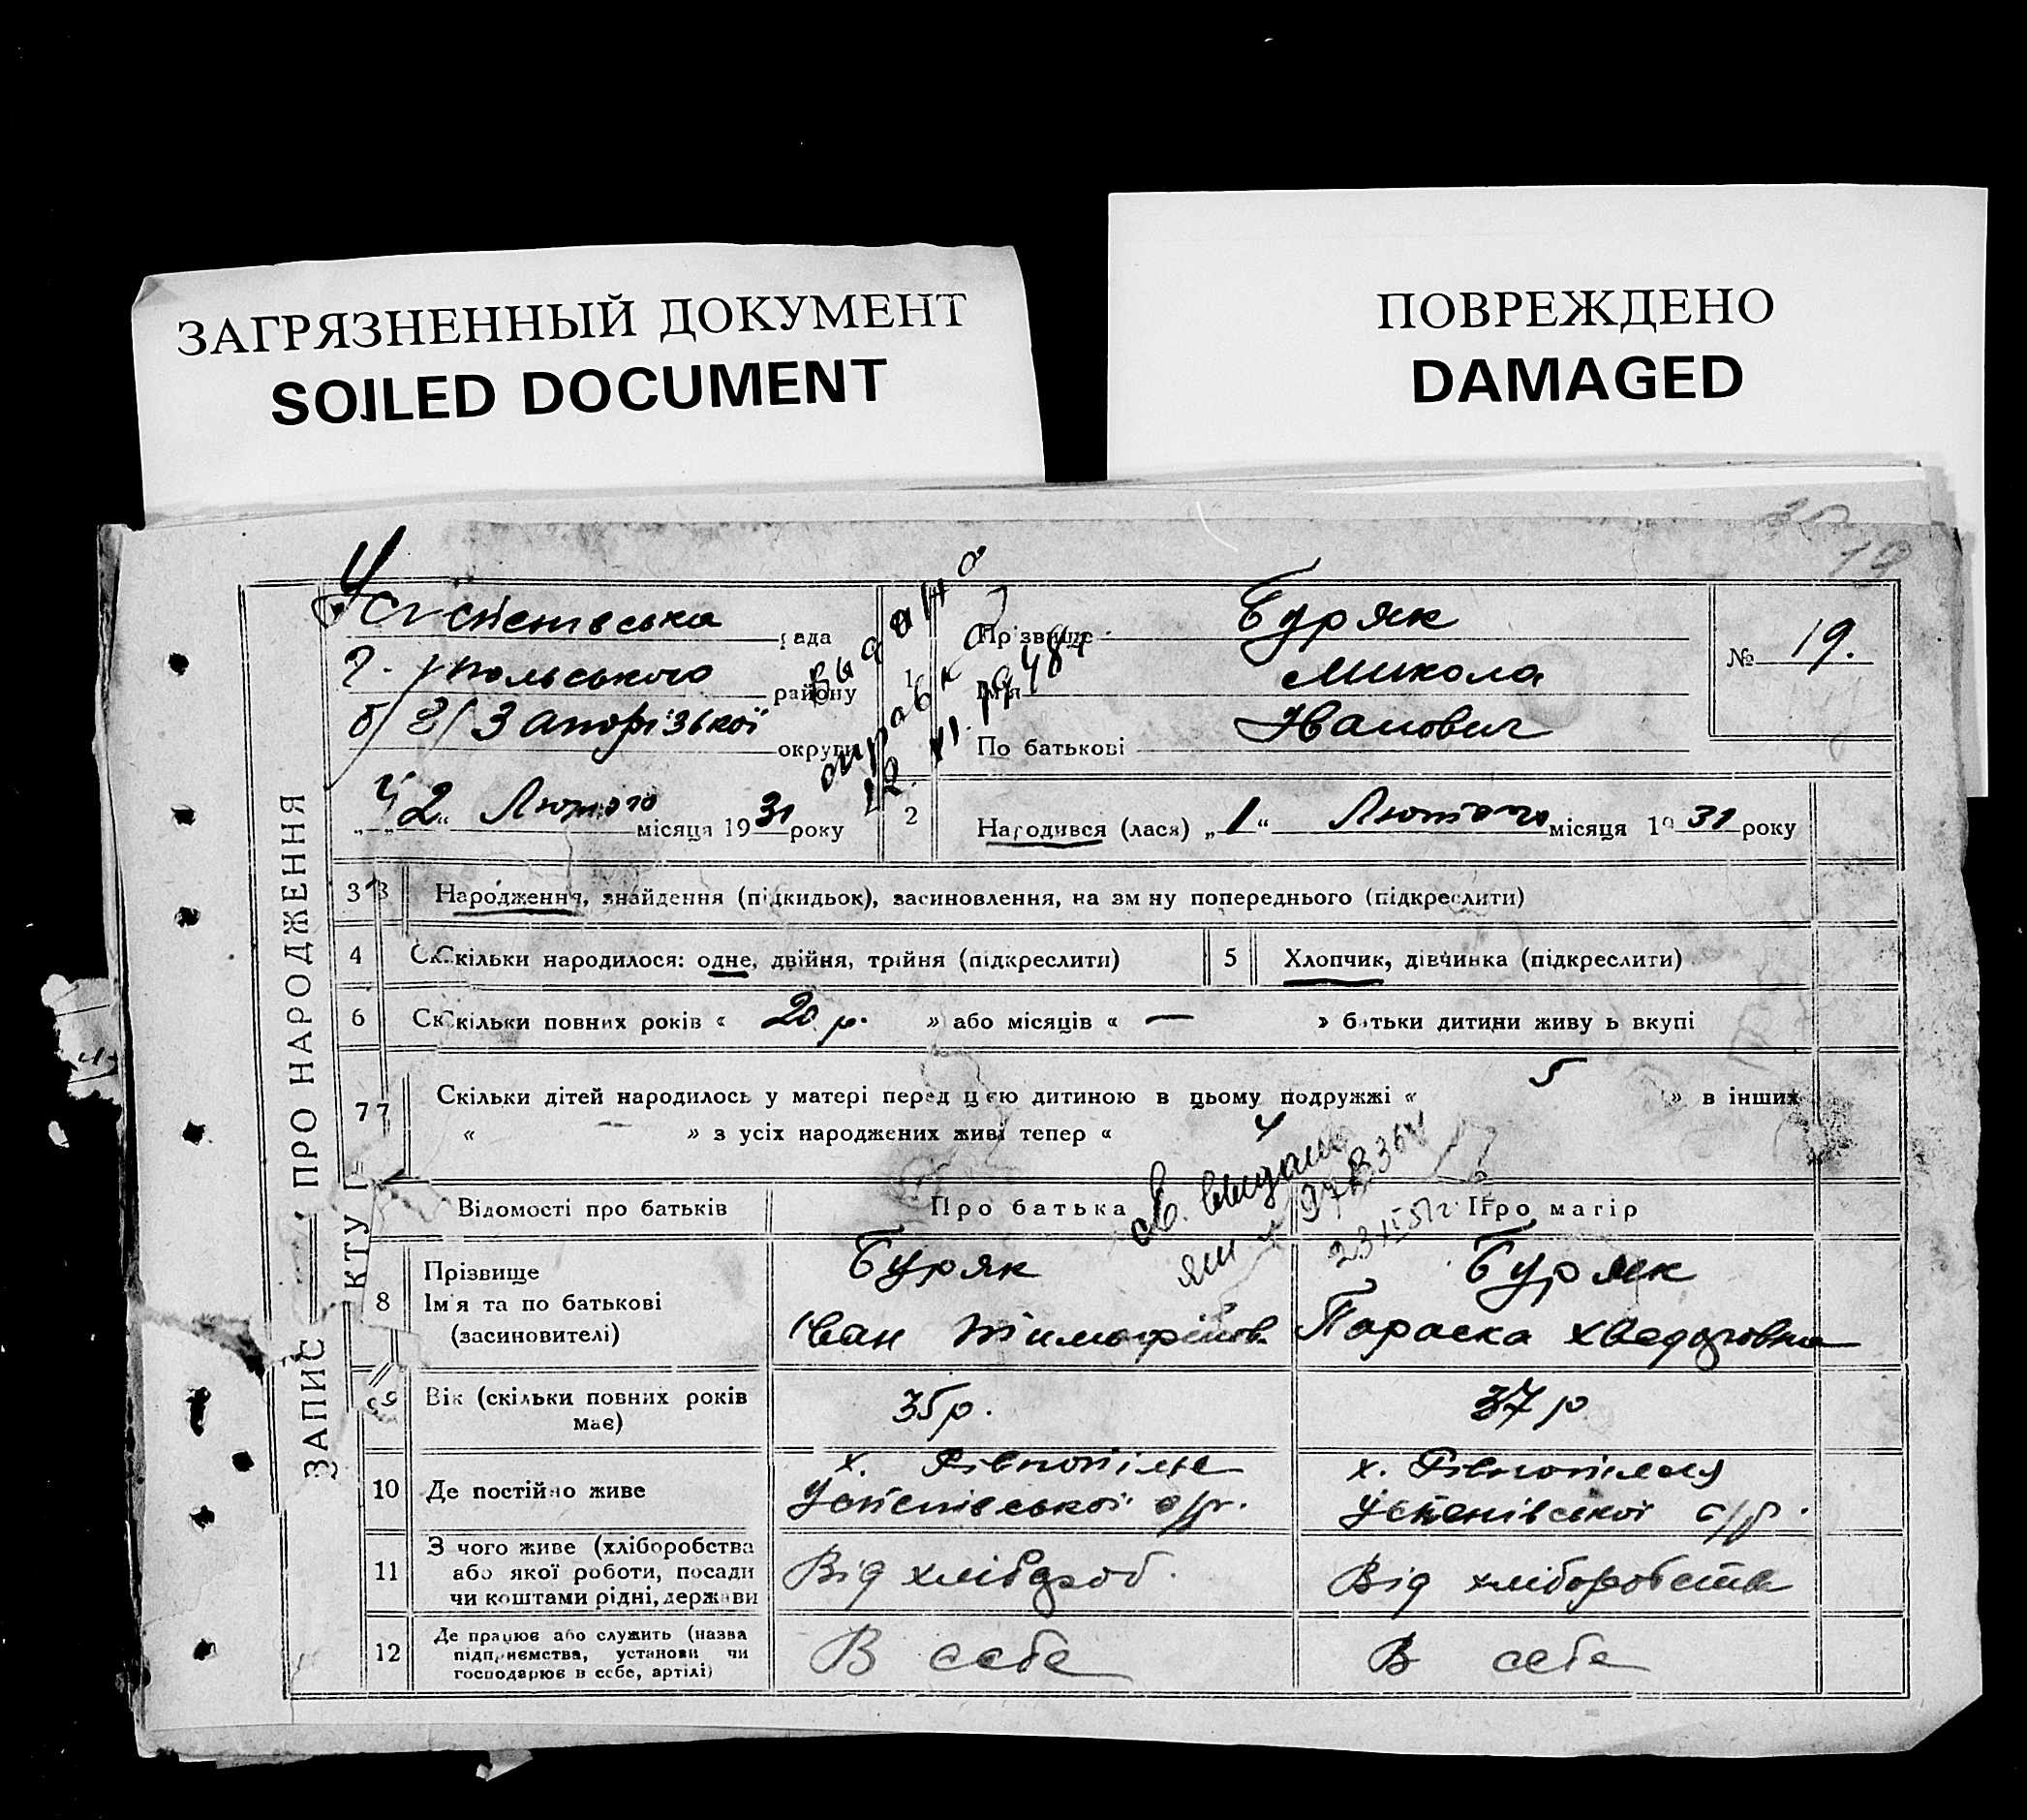 ЗАГРЯЗНЕННЫЙ ДОКУМЕНТ
SOILED DOCUMENT
ПОВРЕЖДЕНО
DAMAGED
19
ЗАПИС ПРО НАРОДЖЕННЯ
Успенівська рада
Г. польського району
б/ З/ Запорізької округи
"2" Лютого місяця 1931 року
Выдана справка
1
Прізвище Буряк
Ім'я Микола
По батькові Иванович
№ 19.
2 Народився (лася) „1“ Лютого місяця 1931 року
3 Народження, знайдення (підкидьок), засиновлення, на зміну попереднього (підкреслити)
4 Скільки народилося: одне, двійня, трійня (підкреслити)
5 Хлопчик, дівчинка (підкреслити)
6 Скільки повних років « 20 р. » або місяців « — » батьки дитини живуть вкупі
7 Скільки дітей народилось у матері перед цією дитиною в цьому подружжі « 5 » в інших
« — » з усіх народжених живі тепер « 4
Відомості про батьків Про батька Про матір
8 Прізвище
Ім'я та по батькові
(засиновителі)
Буряк
Іван Тимофійов.
Буряк
Параска Хведоровна
9 Вік (скільки повних років
має)
35 р.
37 р
10 Де постійно живе
х. Рівнопілля
Успенівської с/р.
х. Рівнопілля
Успенівської с/р.
11 З чого живе (хліборобства
або якої роботи, посади
чи коштами рідні, держави
Від хлібороб.
Від хліборобства
12 Де працює або служить (назва
підприємства, установи чи
господарює в себе, артілі)
В себе
В себе